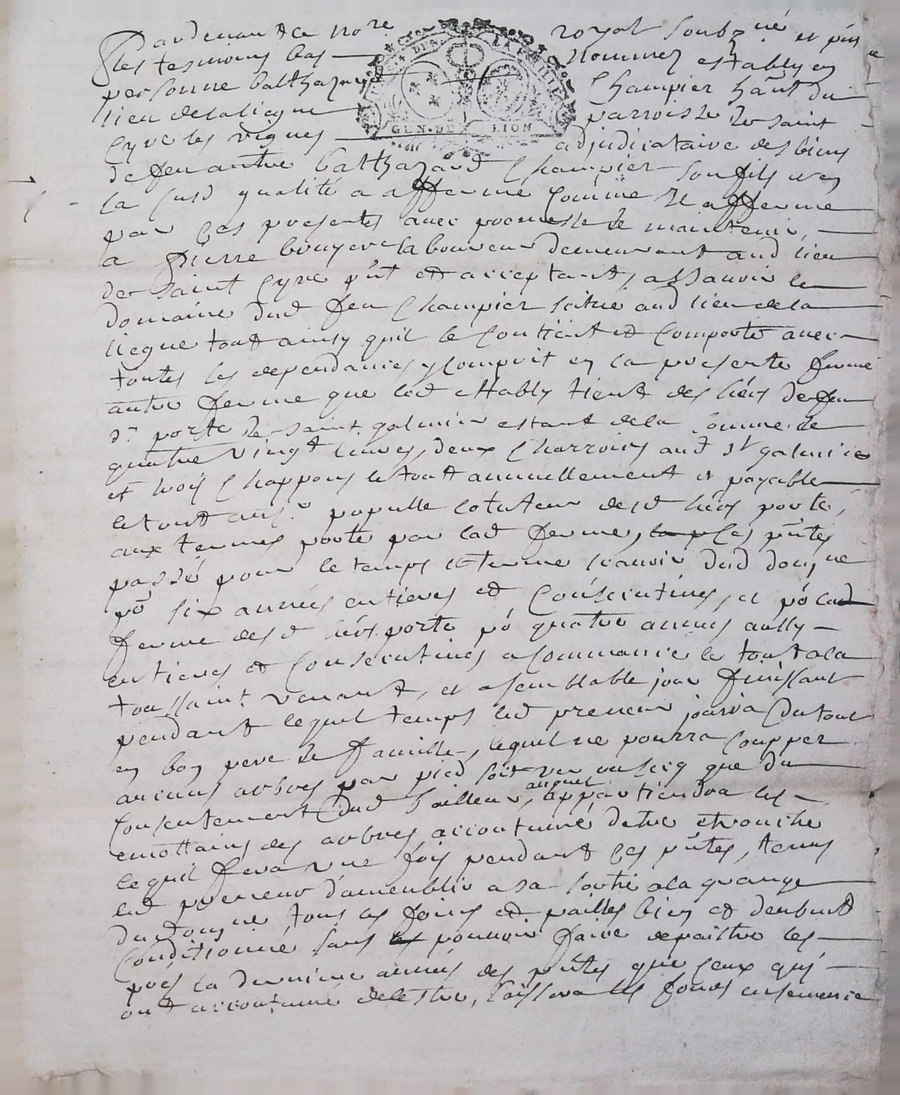 Pardevant ce no.re royal soubz.né et pn̄s
les tesmoins bas nommez estably en
personne balthazard Champier hānt du
lieu de la liegue parroisse de saint
Cyre les vignes adjudicataire des biens
de feu autre balthazard Champier son fils
GEN. DE LION
la susd qualité a affermé Comme Il afferme
par Ces presentes avec promesse de maintenir,
a Pierre bouyer laboureur demeurant aud lieu
de saint Cyre pn̄t et acceptant, assavoir le
domaine dud feu Champier sittué aud lieu de la
liegue tout ainsy quil se Contient et Comporte avec
toutes ses dependances y Compris en la presente ferme
autre ferme que led estably tient des hers de feu
sr porte de saint galmier estant de la somme de
quatre vingt livres, deux Charroirs aud st galmier
et trois Chappons le tout annuellement et payable
le tout au sr populle cotuteur desd hers porte,
aux termes porté par lad ferme, Ces pn̄tes
passé pour le temps et terme scavoir dud domaine
po six années entieres et Consecutives, et po lad
ferme desd hers porte po quatre années aussy
entieres et Consecutives a Commancé le tout a la
toussaint venant, et a semblable jour finissant
pendant lequel temps led preneur jouira du tout
en bon pere de famille, lequel ne pourra Coupper
aucuns arbres par pied soit ver ou secq que du
Consentement dud bailleur, auquel appartiendra les
emottains des arbres accoutumé detre etronché
lequel fera une fois pendant Ces pn̄tes, tenus
led preneur d'ameublir a sa sortie a la grange
du domaine tous les foins et pailles bien et deubment
Conditionné sans pouvoir faire depaistre les
prés la derniere année des pn̄tes que Ceux qui
ont accoutumé de lestre, laissera les fonds ensemencé